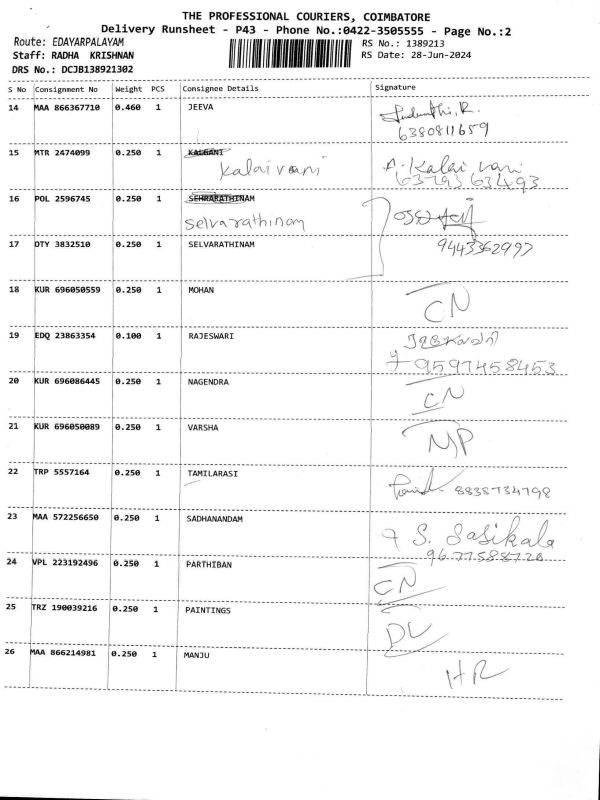 THE PROFESSIONAL COURIERS, COIMBATORE
Delivery Runsheet - P43 - Phone No.:0422-3505555 - Page No.:2
Route: EDAYARPALAYAM RS No.: 1389213
Staff: RADHA KRISHNAN RS Date: 28-Jun-2024
DRS No.: DCJB138921302
S No Consignment No Weight PCS Consignee Details Signature
14 MAA 866367710 0.460 1 JEEVA
6380811659
15 MTR 2474099 0.250 1 KALBANI
Kalaivani A. Kalai vani
63793 63493
16 POL 2596745 0.250 1 SEHRARATHINAM
selvarathinam
17 OTY 3832510 0.250 1 SELVARATHINAM
9443362997
18 KUR 696050559 0.250 1 MOHAN
CN
19 EDQ 23863354 0.100 1 RAJESWARI
9597458453
20 KUR 696086445 0.250 1 NAGENDRA
CN
21 KUR 696050089 0.250 1 VARSHA
MP
22 TRP 5557164 0.250 1 TAMILARASI
8838734798
23 MAA 572256650 0.250 1 SADHANANDAM
S. Sasikala
24 VPL 223192496 0.250 1 PARTHIBAN
CN
25 TRZ 190039216 0.250 1 PAINTINGS
DL
26 MAA 866214981 0.250 1 MANJU
HR